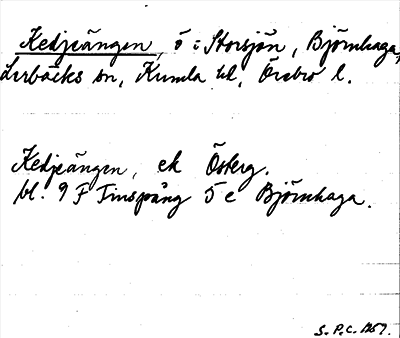 Kedjeängen, ö i Storsjön, Björnhaga,
Lerbäcks sn, Kumla hd, Örebro l.
Kedjeängen, ek Österg.
bl. 9 F Finspång 5 e Björnhaga.
S.P.C. 1967.